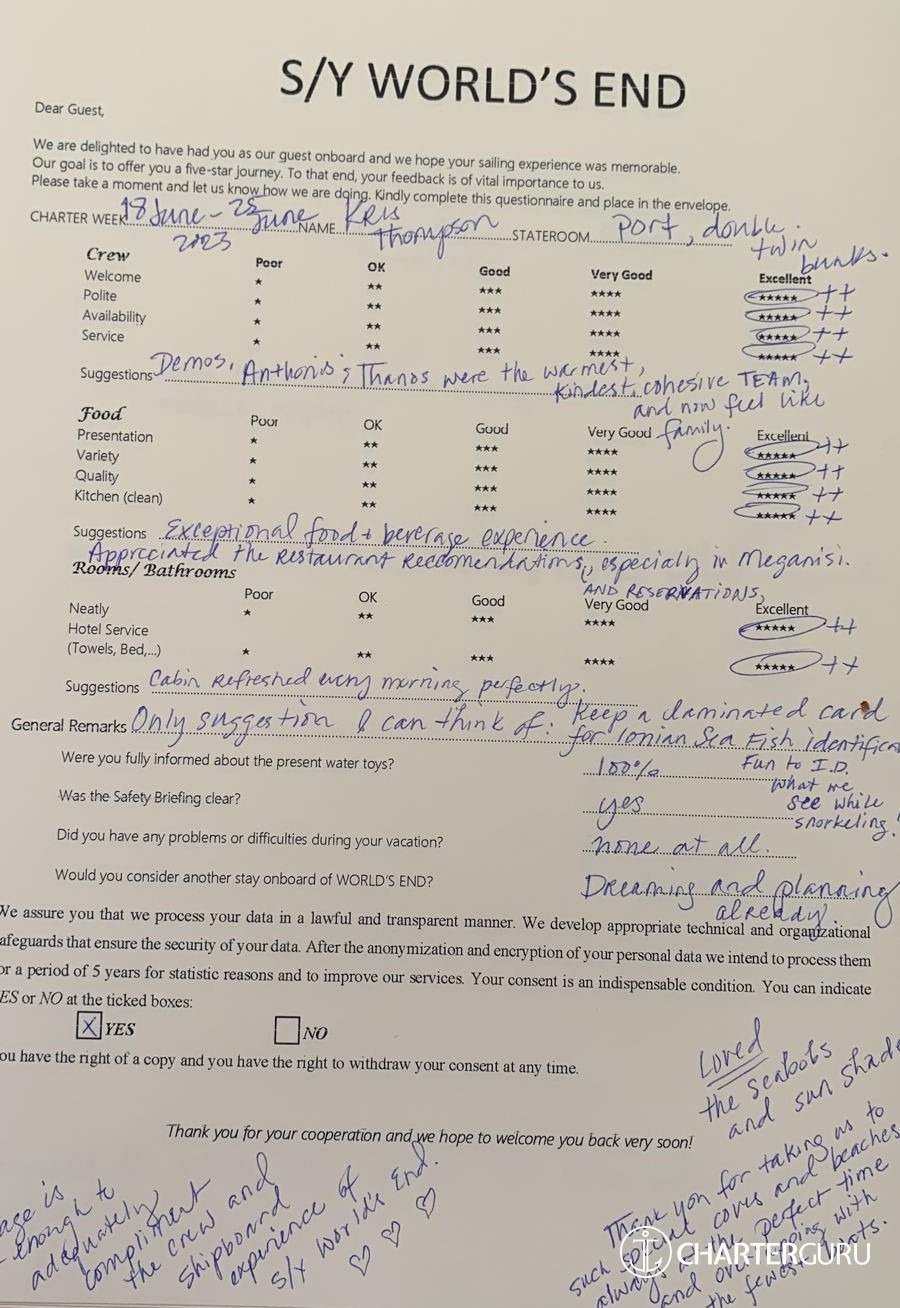 S/Y WORLD'S END
Dear Guest,
We are delighted to have had you as our guest onboard and we hope your sailing experience was memorable.
Our goal is to offer you a five-star journey. To that end, your feedback is of vital importance to us.
Please take a moment and let us know how we are doing. Kindly complete this questionnaire and place in the envelope.
CHARTER WEEK 18 June - 25 June 2023 NAME Kris Thompson STATEROOM Port, double. twin bunks.
Crew Poor OK Good Very Good Excellent
Welcome ★ ★★ ★★★ ★★★★ ★★★★★ ++
Polite ★ ★★ ★★★ ★★★★ ★★★★★ ++
Availability ★ ★★ ★★★ ★★★★ ★★★★★ ++
Service ★ ★★ ★★★ ★★★★ ★★★★★ ++
Suggestions Demos, Anthonis, Thanos were the warmest,
kindest, cohesive TEAM,
and now feel like
family.
Food Poor OK Good Very Good Excellent
Presentation ★ ★★ ★★★ ★★★★ ★★★★★ ++
Variety ★ ★★ ★★★ ★★★★ ★★★★★ ++
Quality ★ ★★ ★★★ ★★★★ ★★★★★ ++
Kitchen (clean) ★ ★★ ★★★ ★★★★ ★★★★★ ++
Suggestions Exceptional food + beverage experience.
Appreciated the restaurant reccomendations, especially in Meganisi.
AND RESERVATIONS,
Rooms/ Bathrooms Poor OK Good Very Good Excellent
Neatly ★ ★★ ★★★ ★★★★ ★★★★★ ++
Hotel Service
(Towels, Bed,...) ★ ★★ ★★★ ★★★★ ★★★★★ ++
Suggestions Cabin refreshed every morning perfectly.
General Remarks Only suggestion I can think of: Keep a laminated card
for Ionian Sea Fish identifica
Fun to I.D.
what we
see while
snorkeling!
Were you fully informed about the present water toys? 100%
Was the Safety Briefing clear? yes
Did you have any problems or difficulties during your vacation? none at all.
Would you consider another stay onboard of WORLD'S END? Dreaming and planning
already.
We assure you that we process your data in a lawful and transparent manner. We develop appropriate technical and organizational
afeguards that ensure the security of your data. After the anonymization and encryption of your personal data we intend to process them
or a period of 5 years for statistic reasons and to improve our services. Your consent is an indispensable condition. You can indicate
ES or NO at the ticked boxes:
X YES NO
ou have the right of a copy and you have the right to withdraw your consent at any time.
Loved
the seabobs
and sun shade
Thank you for your cooperation and we hope to welcome you back very soon!
age is
enough to
adequately
compliment
the crew and
shipboard
experience of
s/y World's End.
♡ ♡ ♡
Thank you for taking us to
such special coves and beaches
always at the perfect time
and overlapping with
the fewest boats.
CHARTERGURU